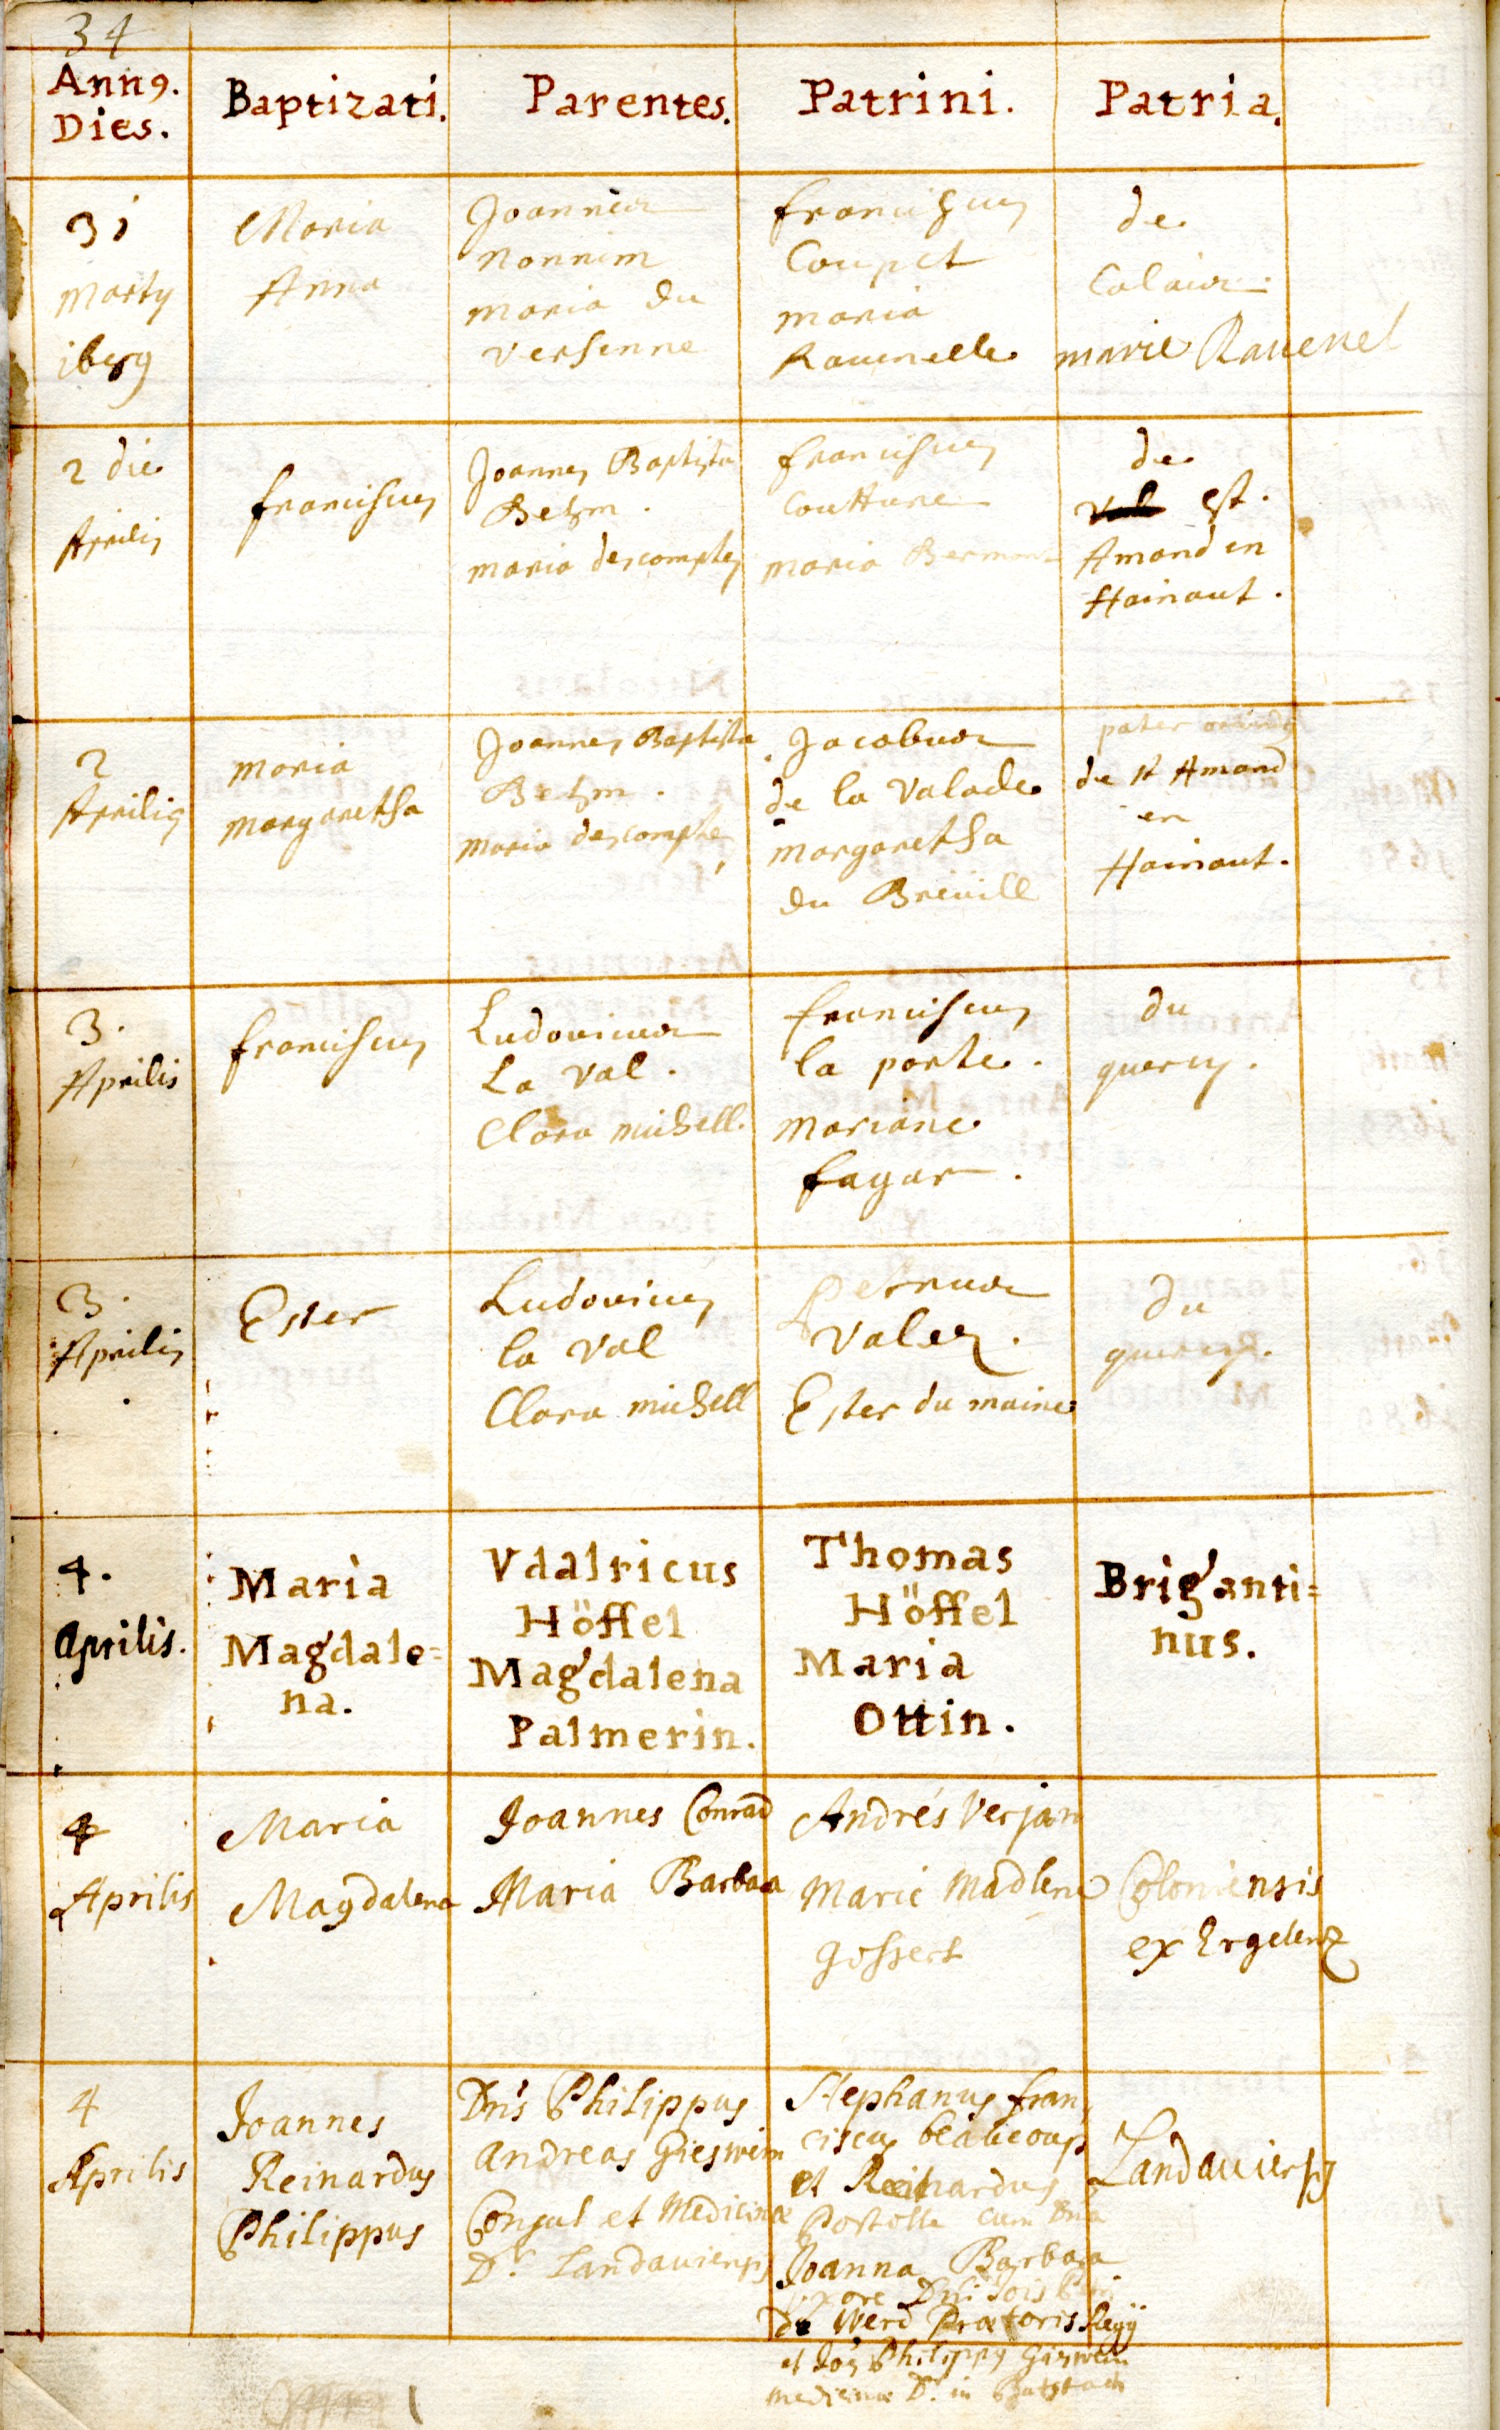 34
Anng.
Dies.
Baptizati.
Parentes.
Patrini.
Patria.
31
Marty
1689
Maria
Anna
Joannes
Nonnim
maria du
versenne
franciscus
Coupet
maria
Rauenelle
de
Calais
marie Rauenel
2 die
Aprilis
franciscus
Joannes Baptista
Behm.
maria descomptes
franciscus
Couture
maria Bermont
de
st.
Amand en
Hainaut.
2
Aprilis
maria
margaretha
Joannes Baptista
Behm.
maria descomptes
Jacobus
de la Valade
margaretha
du Breüill
pater
de st Amand
en
Hainaut.
3.
Aprilis
franciscus
Ludovicus
La Val.
Clara michell.
franciscus
la porte.
mariane
fayar.
du
quercy.
3.
Aprilis
Ester
Ludovicus
la Val
Clara michell
Petrus
Valez.
Ester du maine
du
quercy.
4.
Aprilis.
Maria
Magdale=
na.
Vdalricus
Höffel
Magdalena
Palmerin.
Thomas
Höffel
Maria
Ottin.
Briganti=
nus.
4
Aprilis
Maria
Magdalena
Joannes Conrad
Maria Barbara
Andrés Verjan
Marie Madlene
Gossert
Coloniensis
ex Ergelenz
4
Aprilis
Joannes
Reinardus
Philippus
Dnis Philippus
Andreas Gieswein
Consul et Medicinæ
Dr. Landaviensis
Stephanus fran
ciscus beaucoup
et Reinhardus
Postolle cum Dna
Joanna Barbara
uxore Dni Jois
de Werd Prætoris Regÿ
et Jois Philippi Gieswein
medicinæ Dr. in
Landaviensis